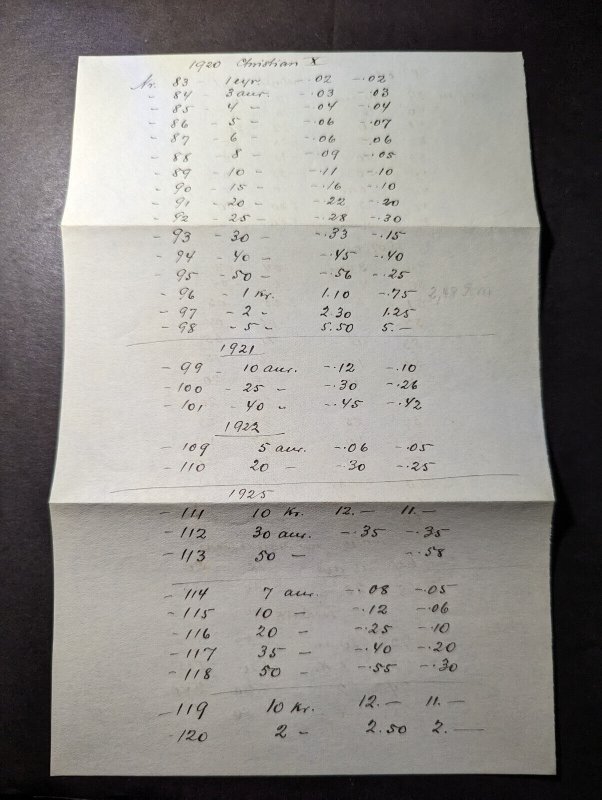 1920 Christian X
Nr. 83 - 1 eyr. -.02 -.02
- 84 3 aur. -.03 -.03
- 85 - 4 - -.04 -.04
- 86 - 5 - -.06 -.07
- 87 - 6 - -.06 -.06
- 88 - 8 - -.09 -.05
- 89 - 10 - -.11 -.10
- 90 - 15 - -.16 -.10
- 91 - 20 - -.22 -.20
- 92 - 25 - -.28 -.30
- 93 - 30 - -.33 -.15
- 94 - 40 - -.45 -.40
- 95 - 50 - -.56 -.25
- 96 - 1 Kr. 1.10 -.75 2,48
- 97 - 2 - 2.30 1.25
- 98 - 5 - 5.50 5.-
1921
- 99 - 10 aur. -.12 -.10
- 100 - 25 - -.30 -.26
- 101 - 40 - -.45 -.42
1922
- 109 5 aur. -.06 -.05
- 110 20 - -.30 -.25
1925
- 111 10 Kr. 12.- 11.-
- 112 30 aur. -.35 -.35
- 113 50 - -.58
- 114 7 aur. -.08 -.05
- 115 10 - -.12 -.06
- 116 20 - -.25 -.10
- 117 35 - -.40 -.20
- 118 50 - -.55 -.30
- 119 10 Kr. 12.- 11.-
- 120 2 - 2.50 2.-